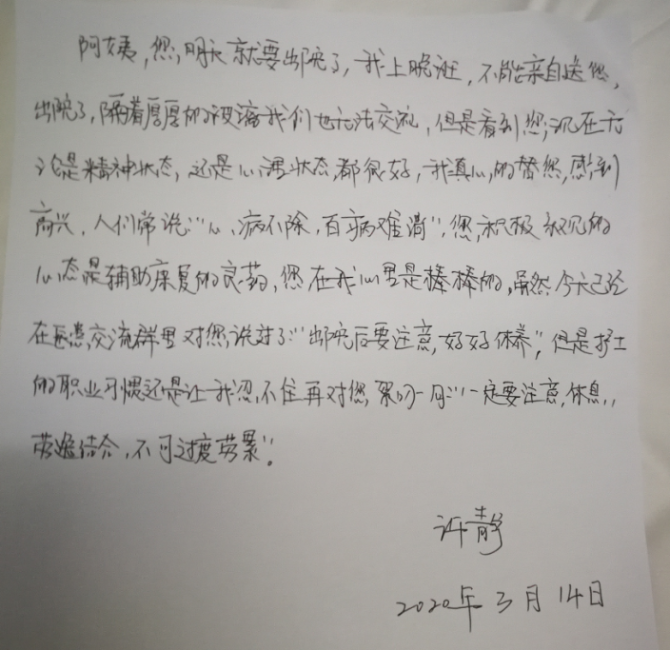 阿姨，您明天就要出院了，我上晚班，不能亲自送您
出院了，隔着厚厚的被 我们也无法交流，但是看到您现在无
论是精神状态，还是心理状态都很好，我真心的替您感到
高兴，人们常说"心病不除，百病难消"，您积极乐观的
心态是辅助康复的良药，您在我心里是棒棒的，虽然今天已经
在医患交流群里对您说过了"出院后要注意，好好休养"，但是护士
的职业习惯还是让我忍不住再对您絮叨一句"一定要注意休息，
劳逸结合，不可过度劳累"。
许静
2020年3月14日